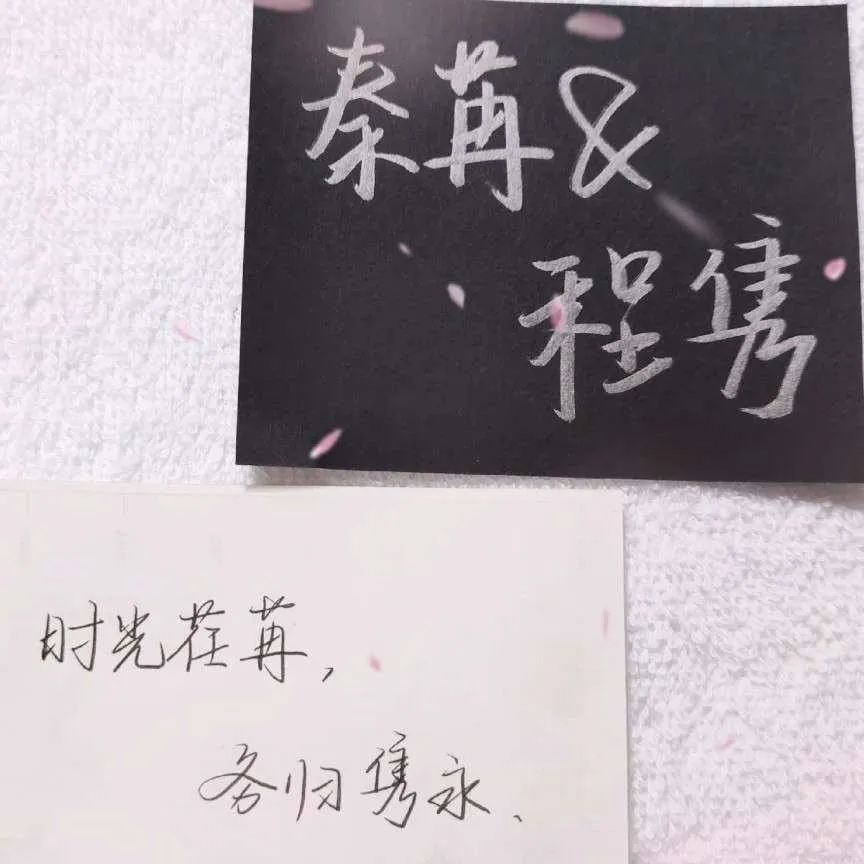 秦苒&
程隽
时光荏苒,
务归隽永、